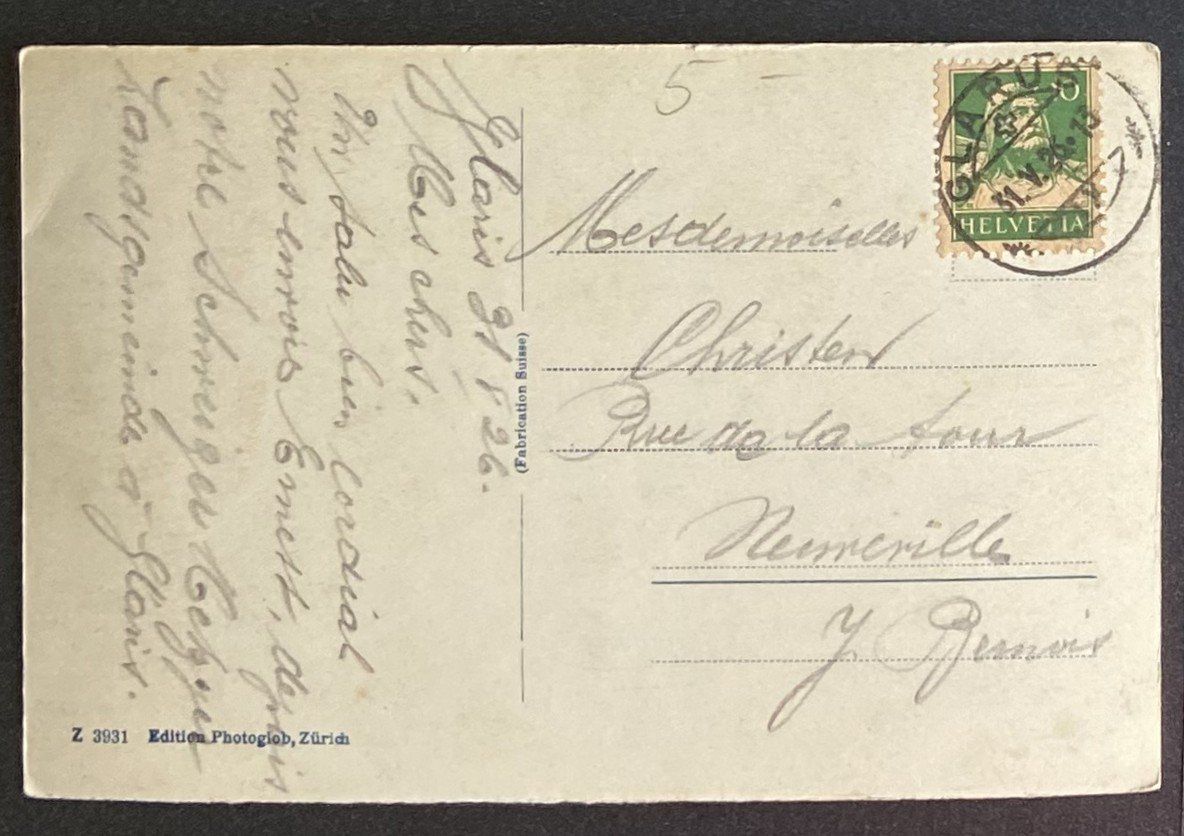 Glaris 31 V 26.
Mes chers.
Un salu bien cordial
vous envoie Ernest, depuis
notre Schwinger Metzger
Landsgemeinde à Glaris.
5 -
Mesdemoiselles
Christen
Rue de la tour
Neuveville
J. Bernois
GLARUS
31.V.26.
HELVETIA
(Fabrication Suisse)
Z 3931 Edition Photoglob, Zürich